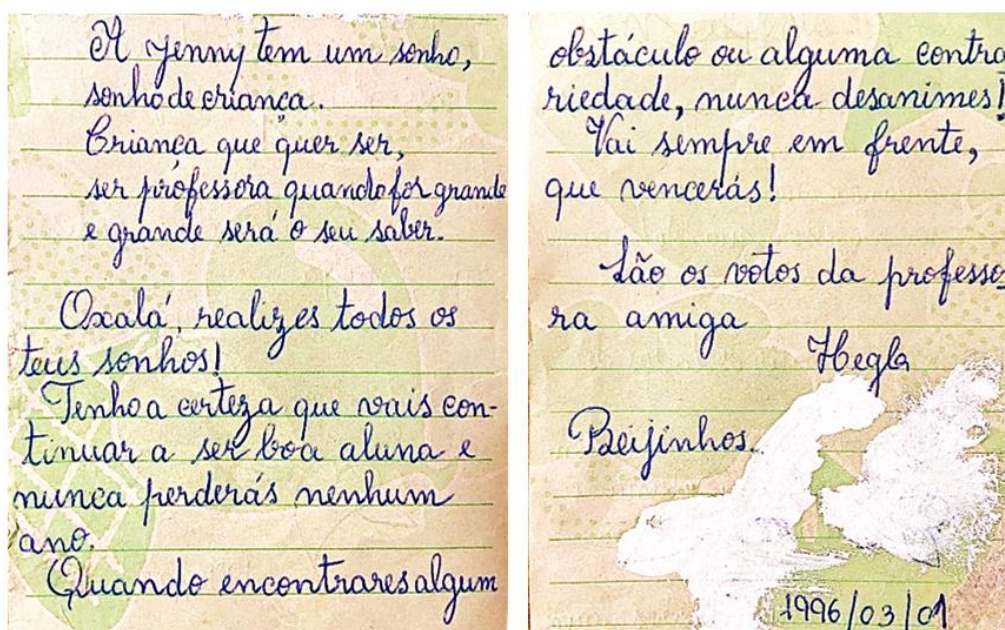 A Jenny tem um sonho,
sonho de criança.
Criança que quer ser,
ser professora quando for grande
e grande será o seu saber.
Oxalá, realizes todos os
teus sonhos!
Tenho a certeza que vais con-
tinuar a ser boa aluna e
nunca perderás nenhum
ano.
Quando encontrares algum
obstáculo ou alguma contra
riedade, nunca desanimes!
Vai sempre em frente,
que vencerás!
São os votos da professo
ra amiga
Beijinhos.
1996/03/01